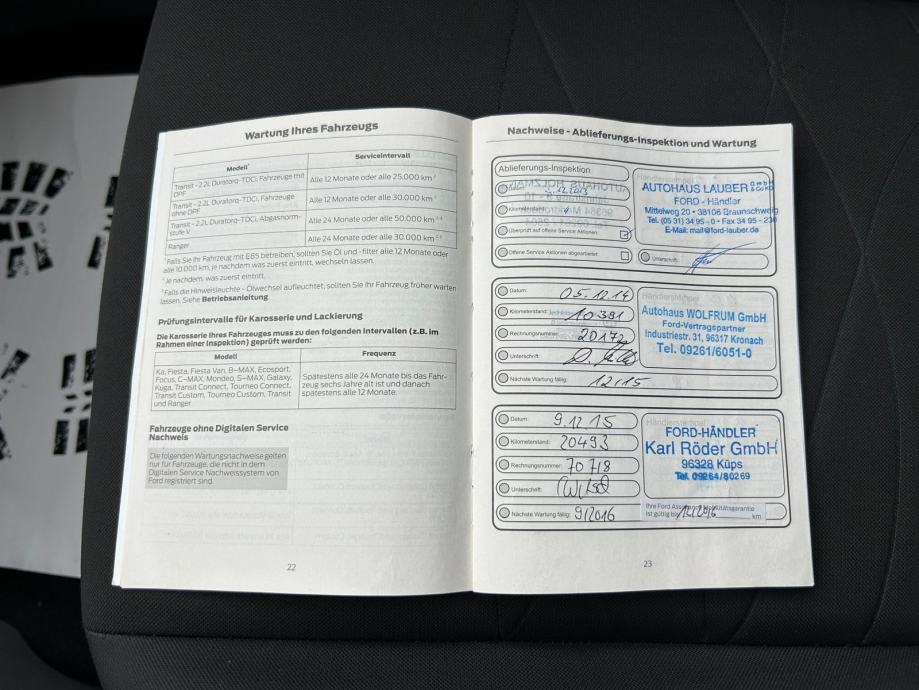 Wartung Ihres Fahrzeugs
Modell¹ Serviceintervall
Transit - 2.2L Duratorq-TDCi, Fahrzeuge mit DPF Alle 12 Monate oder alle 25.000 km
Transit - 2.2L Duratorq-TDCi, Fahrzeuge ohne DPF Alle 12 Monate oder alle 30.000 km
Transit - 2.2L Duratorq-TDCi, Abgasnorm-stufe V Alle 24 Monate oder alle 50.000 km
Ranger Alle 24 Monate oder alle 30.000 km
Falls Sie Ihr Fahrzeug mit E85 betreiben, sollten Sie Öl und -filter alle 12 Monate oder
alle 10.000 km, je nachdem was zuerst eintritt, wechseln lassen.
Je nachdem, was zuerst eintritt.
Falls die Hinweisleuchte - Ölwechsel aufleuchtet, sollten Sie Ihr Fahrzeug früher warten
lassen. Siehe Betriebsanleitung
Prüfungsintervalle für Karosserie und Lackierung
Die Karosserie Ihres Fahrzeugs muss zu den folgenden Intervallen (z.B. im
Rahmen einer Inspektion) geprüft werden:
Modell Frequenz
Ka, Fiesta, Fiesta Van, B-MAX, Ecosport,
Focus, C-MAX, Mondeo, S-MAX, Galaxy,
Kuga, Transit Connect, Tourneo Connect,
Transit Custom, Tourneo Custom, Transit
und Ranger
Spätestens alle 24 Monate bis das Fahr-
zeug sechs Jahre alt ist und danach
spätestens alle 12 Monate.
Fahrzeuge ohne Digitalen Service
Nachweis
Die folgenden Wartungsnachweise gelten
nur für Fahrzeuge, die nicht in dem
Digitalen Service Nachweissystem von
Ford registriert sind.
22
Nachweise - Ablieferungs-Inspektion und Wartung
Ablieferungs-Inspektion
Überprüft auf offene Service Aktionen
Offene Service Aktionen abgearbeitet
AUTOHAUS LAUBER GmbH & Co KG
FORD - Händler
Mittelweg 20 • 38106 Braunschweig
Tel. (05 31) 34 95 - 0 • Fax 34 95 - 230
E-Mail: mail@ford-lauber.de
Unterschrift:
Datum: 05.12.14
Kilometerstand: 10381
Rechnungsnummer: 20172
Unterschrift:
Nächste Wartung fällig: 12/15
Händlerstempel
Autohaus WOLFRUM GmbH
Ford-Vertragspartner
Industriestr. 31, 96317 Kronach
Tel. 09261/6051-0
Datum: 9.12.15
Kilometerstand: 20493
Rechnungsnummer: 70718
Unterschrift:
Nächste Wartung fällig: 9/2016
Händlerstempel
FORD-HÄNDLER
Karl Röder GmbH
96328 Küps
Tel. 09264/80269
Ihre Ford Assistance Mobilitätsgarantie
ist gültig bis 12/2016 km
23